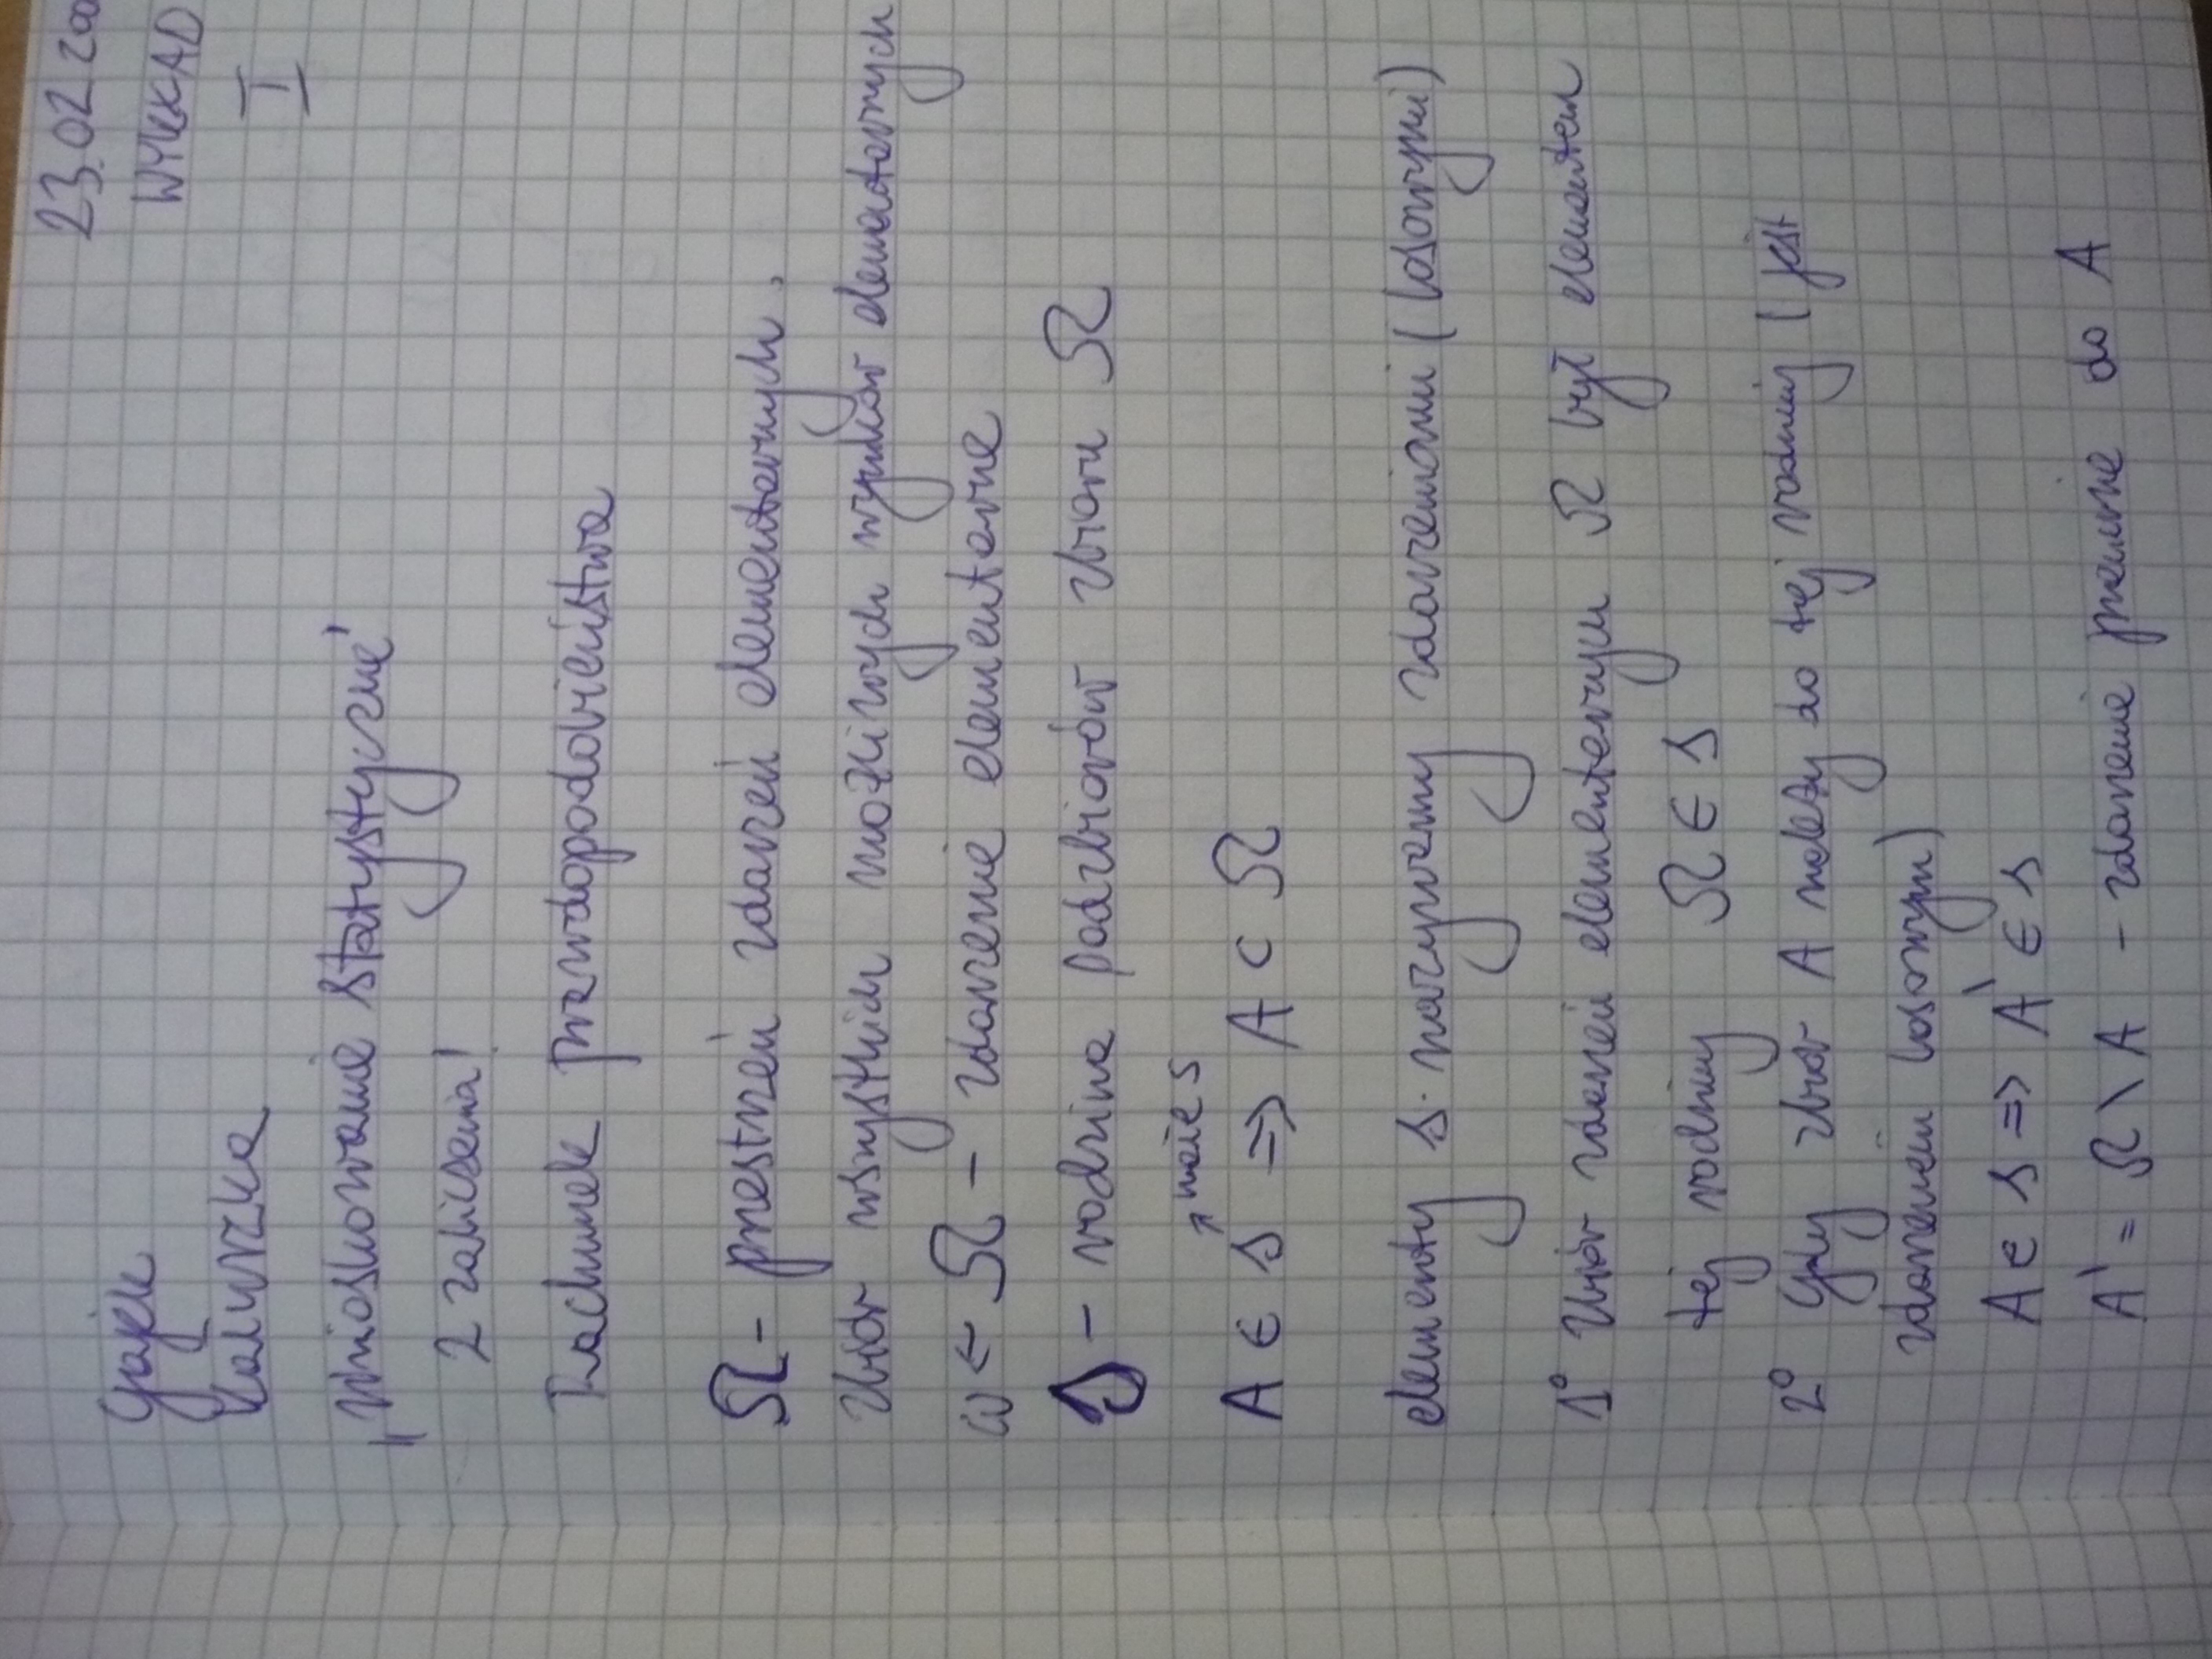 23.02.200
WYKŁAD
I
Gajek
Kałuszka
„Wnioskowanie statystyczne"
2 zaliczenia!
Rachunek prawdopodobieństwa
Ω - przestrzeń zdarzeń elementarnych,
zbiór wszystkich możliwych wyników elementarnych
ω ∈ Ω - zdarzenie elementarne
S - rodzina podzbiorów zbioru Ω
↗ małe s
A ∈ s ⇒ A ⊂ Ω
elementy s. nazywamy zdarzeniami (losowymi)
1° Zbiór zdarzeń elementarnych Ω był elementem
tej rodziny Ω ∈ s
2° Gdy zbiór A należy do tej rodziny (jest
zdarzeniem losowym)
A ∈ s ⇒ A' ∈ s
A' = Ω \ A - zdarzenie przeciwne do A